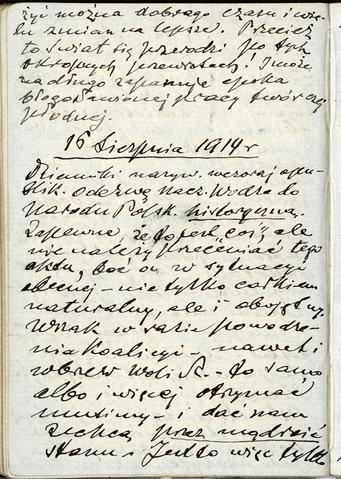 żyć można dobrego czasu i wie-
lu zmian na lepsze. Przecież
to świat się przerodzi po tych
okropnych przewrotach! I może
na długo zapanuje epoka
błogosławionej pracy twórczej
płodnej.
16 Sierpnia 1914 r
Dzienniki nazyw. wczoraj opu-
blik. odezwę nacz. Wodza do
Narodu Polsk. historyczną.
Zapewne, że to jest coś, ale
nie należy przeceniać tego
aktu, boć on w sytuacyi
obecnej – nie tylko całkiem
naturalny, ale i
Wszak w razie powodze-
nia Koalicyi – nawet i
wbrew woli – to samo
albo i więcej otrzymać
musimy – i dać nam
zechcą przez mądrość
stanu. Jest to więc tylko